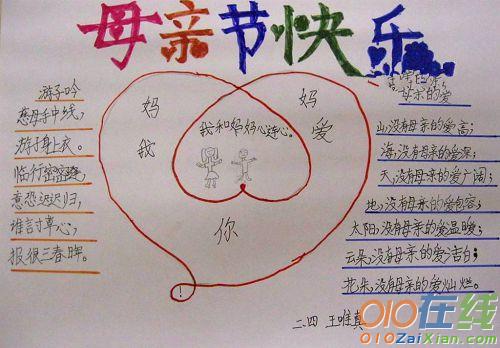 母亲节快乐
游子吟
慈母手中线,
游子身上衣。
临行密密缝
意恐迟迟归,
谁言寸草心,
报很三春晖。
妈 妈
我 爱
我和妈妈心连心。
你
!
母亲的爱
山,没有母亲的爱高;
海,没有母亲的爱深;
天,没有母亲的爱广阔;
地,没有母亲的爱包容;
太阳,没有母亲的爱温暖;
云朵,没有母亲的爱洁白;
花朵,没有母亲的爱灿烂。
二.四 王唯真
010在线
010ZaiXian.com